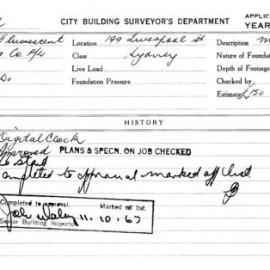 CITY BUILDING SURVEYOR'S DEPARTMENT APPLIC
YEAR
Fluorescent Location 199 Liverpool St Description
Co P/L Class Sydney Nature of Foundat
Do Live Load Depth of Footings
Foundation Pressure Checked by
Estimate £150
HISTORY
Digital Clock
Approved PLANS & SPECN. ON JOB CHECKED
Completed to approval marked off list
Completed to approval. Marked off list.
11.10.67
Senior Building Inspector